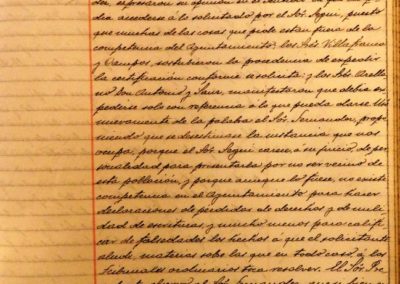 der, expresaron su opinion en el sentido de que no po-
dia accederse á lo solicitado por el Sr. Segui, puesto
que muchas de las cosas que pide estan fuera de la
competencia del Ayuntamiento; los Srs Villafranca
y Campos, sostuvieron la procedencia de expedir
la certificación conforme se solicita; y los Srs Arella-
no don Antonio y Sanz, manifestaron que debia ex-
pedirse solo con referencia á lo que pueda darse. Ul-
timamente dá la palabra el Sr. Fernandez, propo-
niendo que se desestimase la instancia que nos
ocupa, porque el Sr Segui carece, á su juicio, de per-
sonalidad para presentarla por no ser vecino de
esta población, y porque aunque lo fuese, no existe
competencia en el Ayuntamiento para hacer
declaraciones de pérdidas de derechos y de nuli-
dad de escrituras y mucho menos para califi-
car de falsedades los hechos á que el solicitante
alude, materias sobre las que en todo caso, á los
Tribunales ordinarios toca resolver. El Sr. Pre-